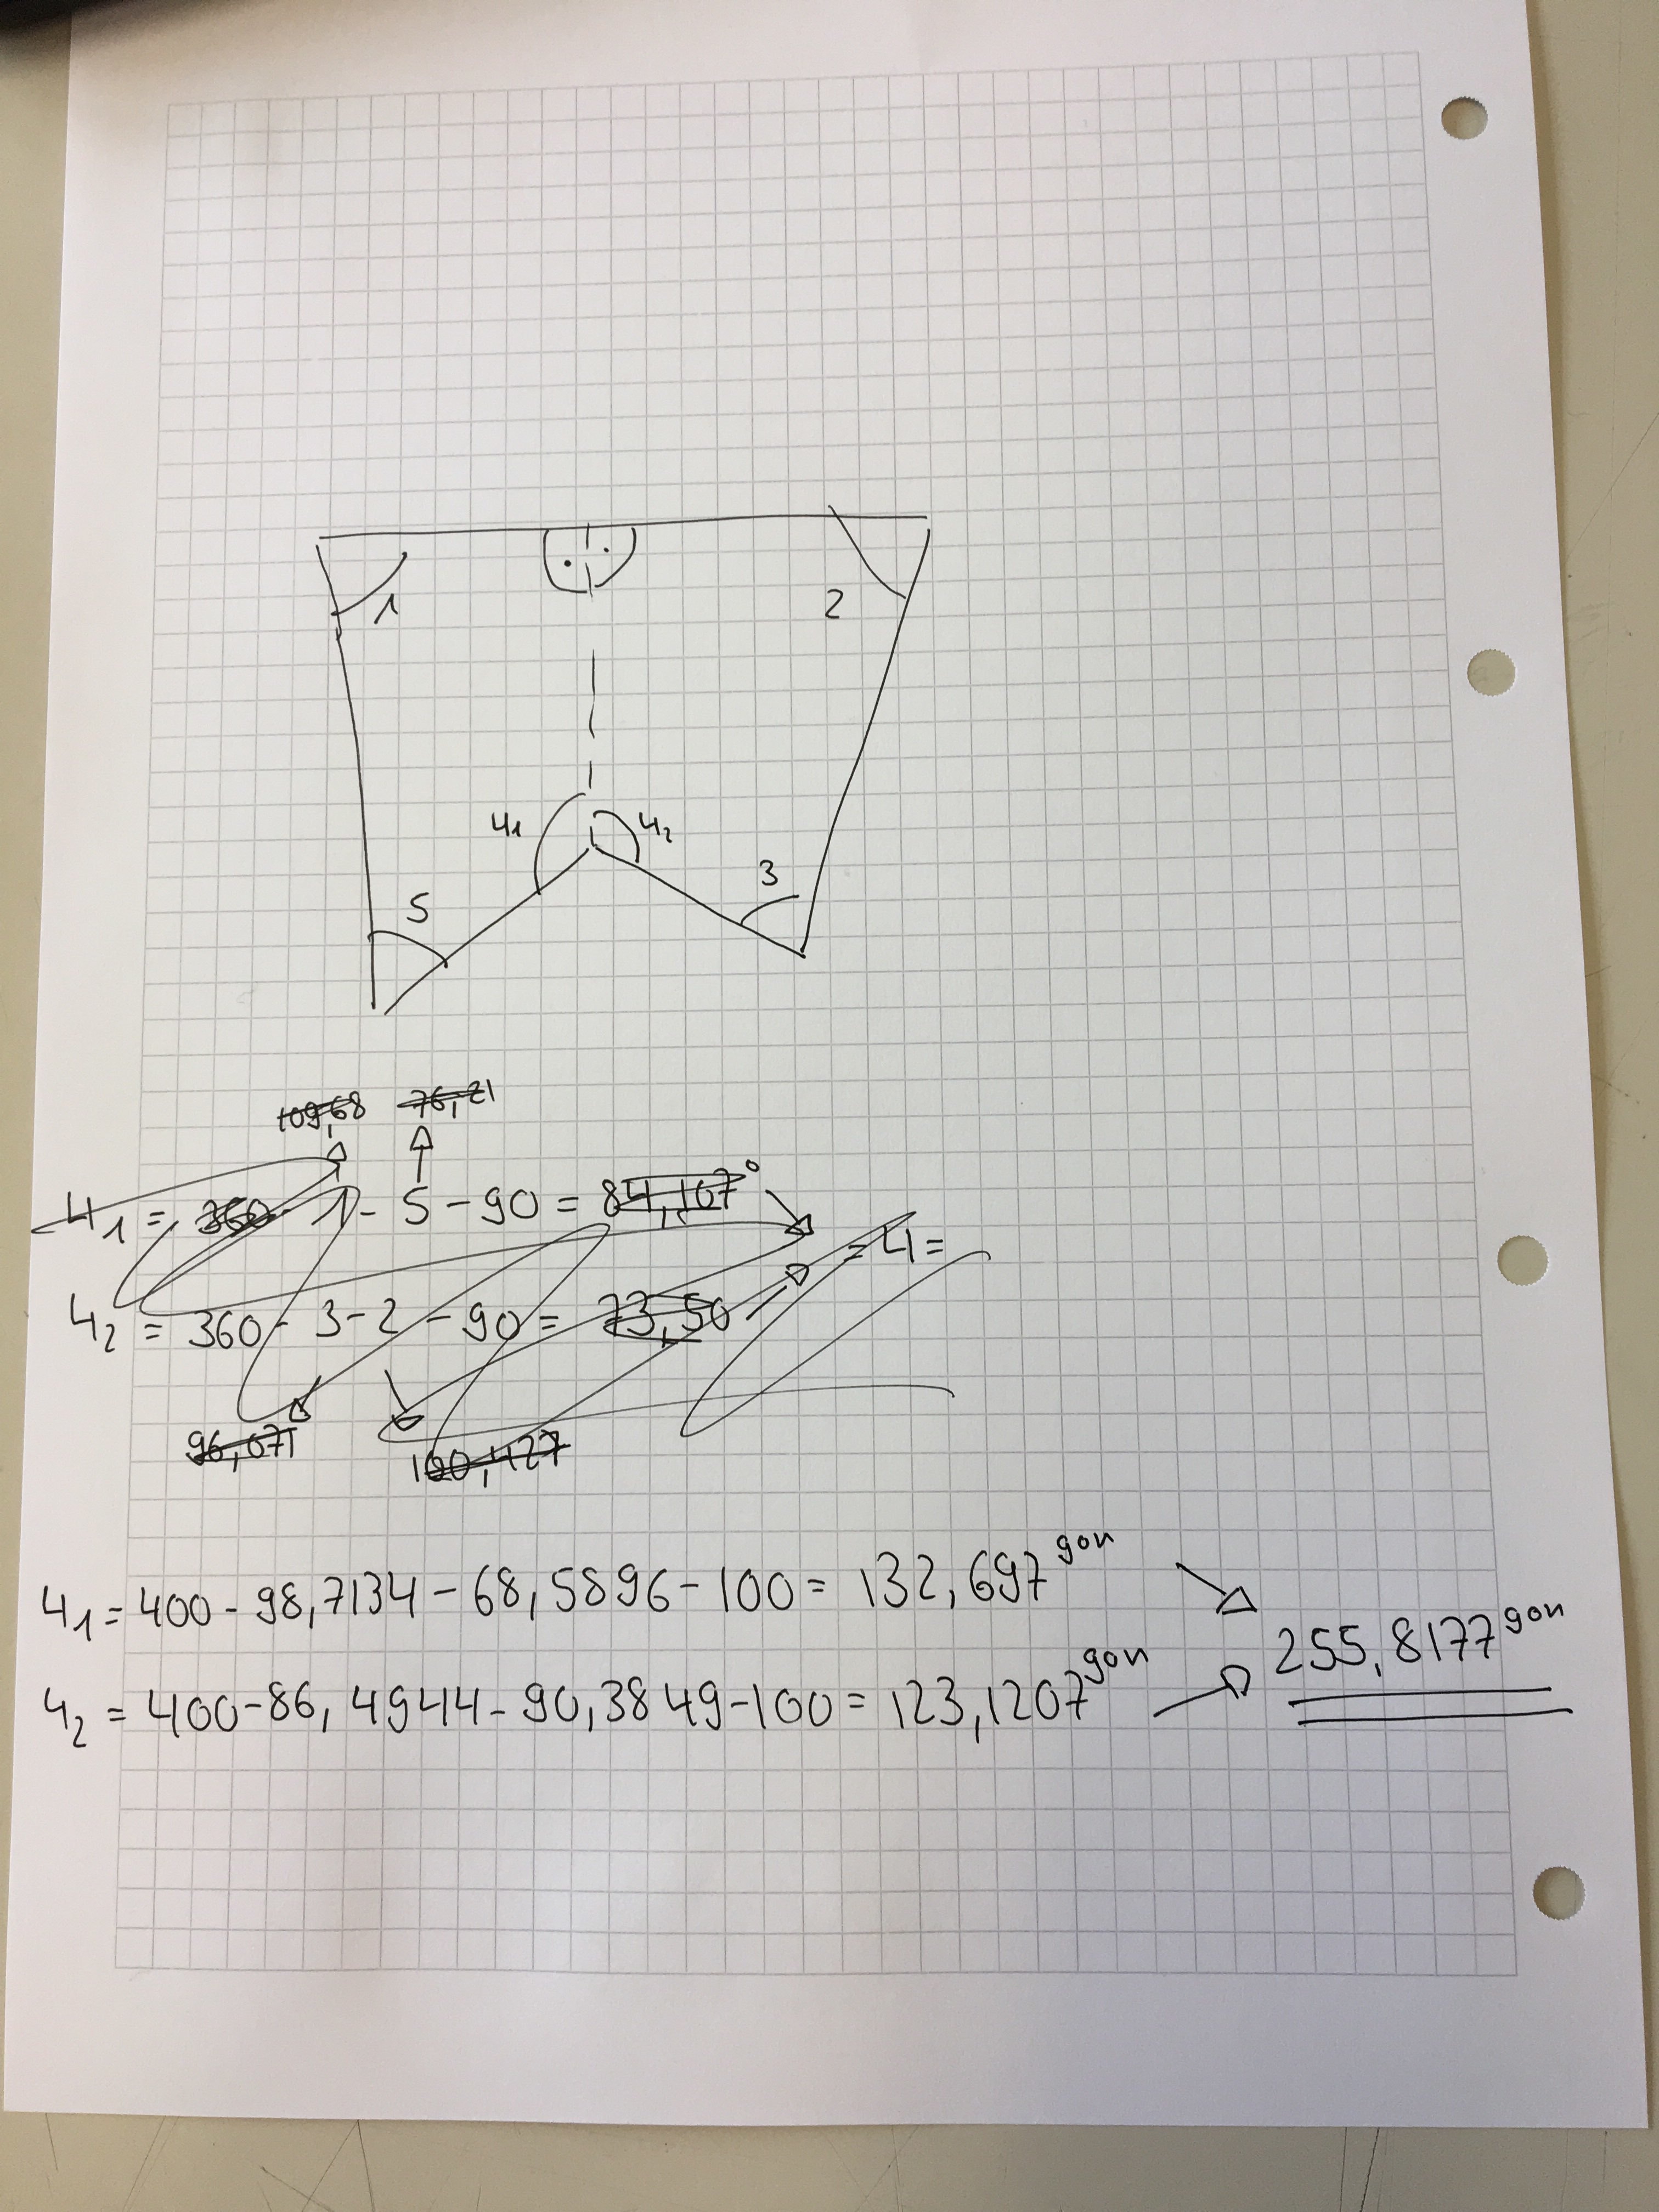 1
2
4₁ 4₂
3
5
109,68 76,21
4₁ = 360 - 1 - 5 - 90 = 84,107°
= 4 =
4₂ = 360 - 3 - 2 - 90 = 73,50
96,071 100,427
4₁ = 400 - 98,7134 - 68,5896 - 100 = 132,697 gon
255,8177 gon
4₂ = 400 - 86,4944 - 90,3849 - 100 = 123,1207 gon